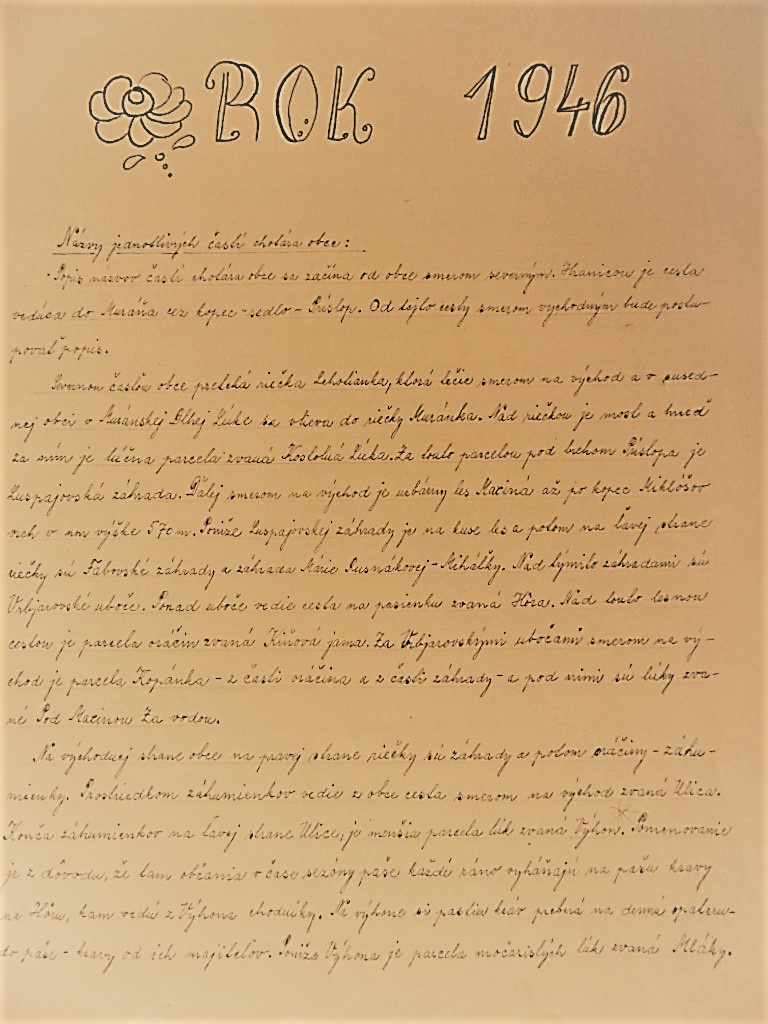 ROK 1946
Názvy jednotlivých častí chotára obce:
Popis nazvov častí chotára obce sa začína od obce smerom severným. Hranicou je cesta
vedúca do Muráňa cez kopec - sedlo - Príslop. Od tejto cesty smerom východným bude postu-
povať popis.
Severnou časťou obce preteká riečka Lehotianka, ktorá tečie smerom na východ a v sused-
nej obci v Muránskej Dlhej Lúke sa vlieva do riečky Muránka. Nad riečkou je most a hneď
za ním je lúčna parcela zvaná Kostolná Lúka. Za touto parcelou pod brehom Príslopa je
Luspajovská záhrada. Ďalej smerom na východ je urbárny les Maciná až po kopec Miklóšov
vrch v nm výške 570 m. Poniže Luspajovskej záhrady je na kuse les a potom na ľavej strane
riečky sú Fábovské záhrady a záhrada Márie Dusnákovej - Mihálky. Nad týmito záhradami sú
Vrbjarovské uboče. Ponad uboče vedie cesta na pasienku zvaná Hôra. Nad touto lesnou
cestou je parcela oráčin zvaná Kiňová jama. Za Vrbjarovskými ubočami smerom na vý-
chod je parcela Kopánka - z časti oráčina a z časti záhrady - a pod nimi sú lúky zva-
né Pod Macinou Za vodou.
Na východnej strane obce na pravej strane riečky sú záhrady a potom oráčiny - záhu-
mienky. Prostriedkom záhumienkov vedie z obce cesta smerom na východ zvaná Ulica.
Konča záhumienkov na ľavej strane Ulice, je menšia parcela lúk zvaná Výhon. Pomenovanie
je z dôvodu, že tam občania v čase sezóny paše každé ráno vyháňajú na pašu kravy
na Hôru, kam vedú z Výhona chodníky. Na výhone si pastier kráv preberá na dennú opateru-
do paše - kravy od ich majiteľov. Poniže Výhona je parcela močaristých lúk zvaná Mláky.